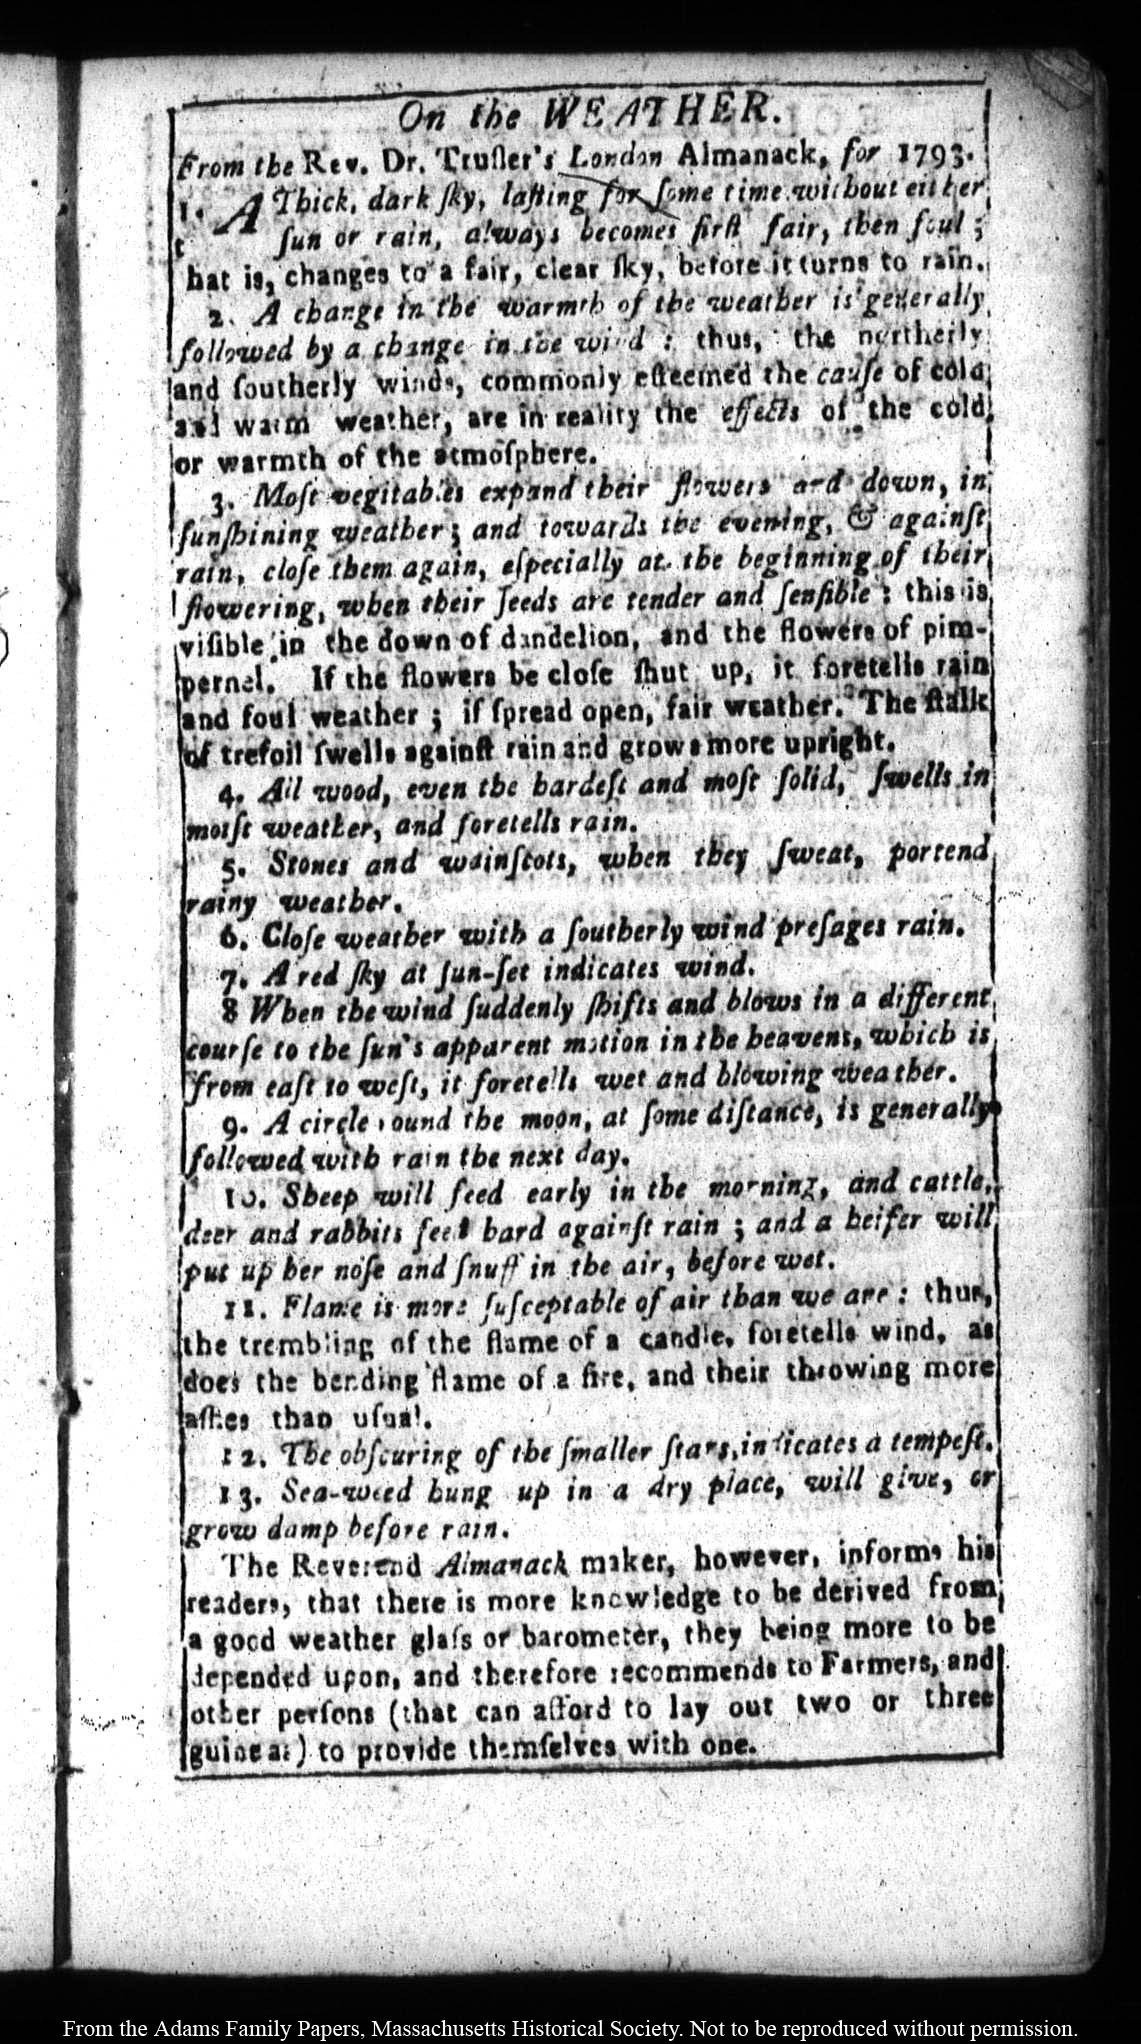 On the WEATHER.
From the Rev. Dr. Truſler's London Almanack, for 1793.
1. A Thick, dark ſky, laſting for ſome time without either
t ſun or rain, always becomes firſt fair, then foul ;
hat is, changes to a fair, clear ſky, before it turns to rain.
2. A change in the warmth of the weather is generally
followed by a change in the wind : thus, the northerly
and ſoutherly winds, commonly eſteemed the cauſe of cold
and warm weather, are in reality the effects of the cold
or warmth of the atmoſphere.
3. Moſt vegitables expand their flowers and down, in
ſunſhining weather ; and towards the evening, & againſt
rain, cloſe them again, eſpecially at the beginning of their
flowering, when their ſeeds are tender and ſenſible : this is
viſible in the down of dandelion, and the flowers of pim-
pernel. If the flowers be cloſe ſhut up, it foretells rain
and foul weather ; if ſpread open, fair weather. The ſtalk
of trefoil ſwells againſt rain and grows more upright.
4. All wood, even the hardeſt and moſt ſolid, ſwells in
moiſt weather, and foretells rain.
5. Stones and wainſcots, when they ſweat, portend
rainy weather.
6. Cloſe weather with a ſoutherly wind preſages rain.
7. A red ſky at ſun-ſet indicates wind.
8 When the wind ſuddenly ſhifts and blows in a different
courſe to the ſun's apparent motion in the heavens, which is
from eaſt to weſt, it foretells wet and blowing weather.
9. A circle round the moon, at ſome diſtance, is generally
followed with rain the next day.
10. Sheep will feed early in the morning, and cattle,
deer and rabbits feed hard againſt rain ; and a heifer will
put up her noſe and ſnuff in the air, before wet.
11. Flame is more ſuſceptable of air than we are : thus,
the trembling of the flame of a candle, foretells wind, as
does the bending flame of a fire, and their throwing more
aſhes than uſual.
12. The obſcuring of the ſmaller ſtars, indicates a tempeſt.
13. Sea-weed hung up in a dry place, will give, or
grow damp before rain.
The Reverend Almanack maker, however, informs his
readers, that there is more knowledge to be derived from
a good weather glaſs or barometer, they being more to be
depended upon, and therefore recommends to Farmers, and
other perſons (that can afford to lay out two or three
guineas) to provide themſelves with one.
From the Adams Family Papers, Massachusetts Historical Society. Not to be reproduced without permission.